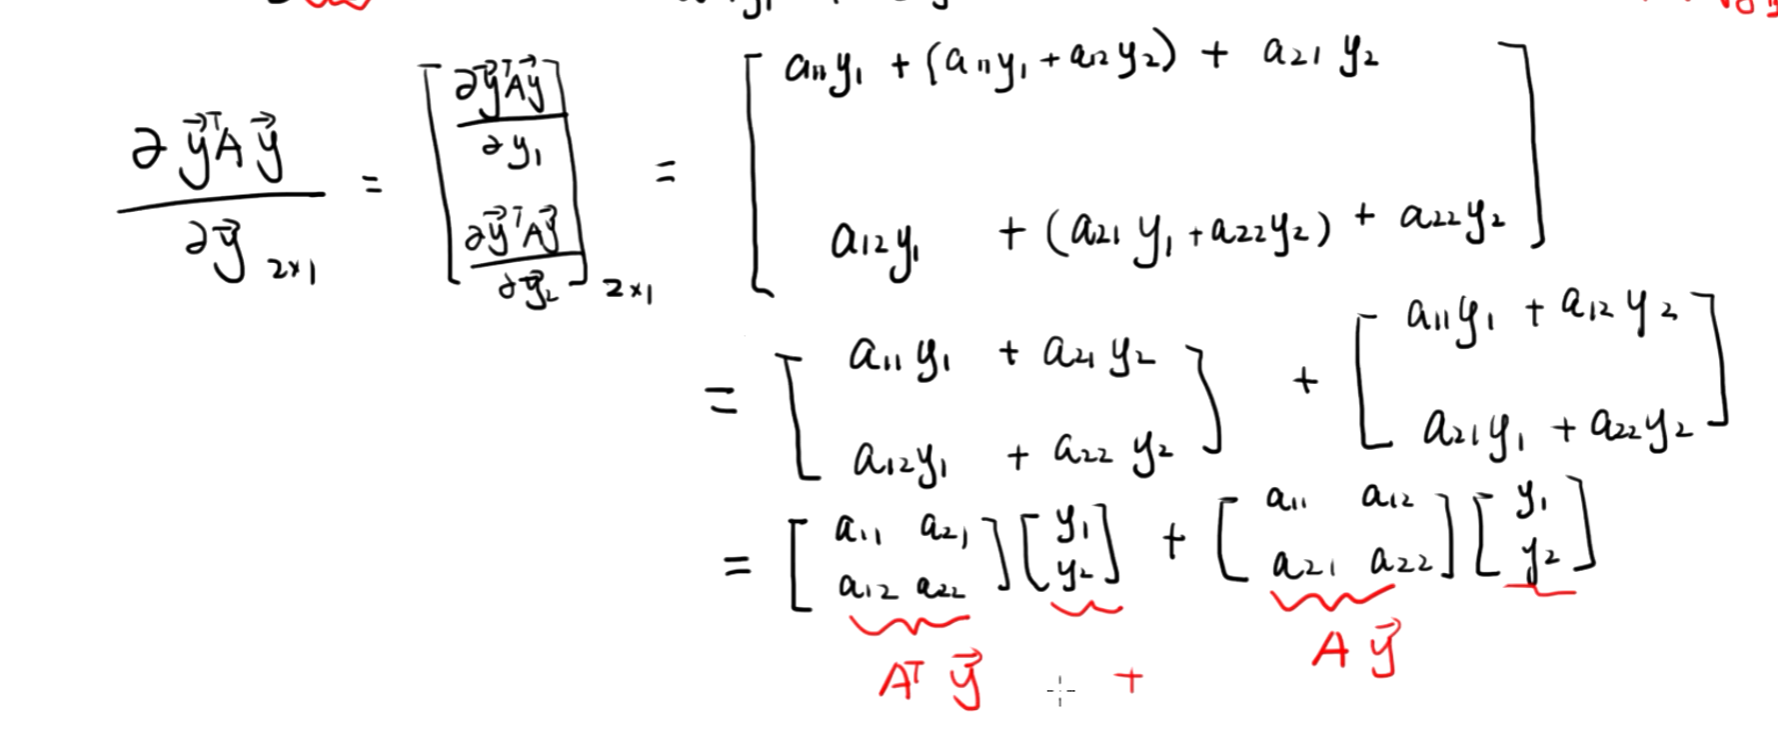 ∂y⃗ᵀAy⃗ / ∂y⃗ ₂ₓ₁ = [ ∂y⃗ᵀAy⃗ / ∂y₁ ; ∂y⃗ᵀAy⃗ / ∂y⃗₂ ] ₂ₓ₁ = [ a₁₁y₁ + (a₁₁y₁ + a₁₂y₂) + a₂₁y₂ ; a₁₂y₁ + (a₂₁y₁ + a₂₂y₂) + a₂₂y₂ ]
= [ a₁₁y₁ + a₂₁y₂ ; a₁₂y₁ + a₂₂y₂ ] + [ a₁₁y₁ + a₁₂y₂ ; a₂₁y₁ + a₂₂y₂ ]
= [ a₁₁ a₂₁ ; a₁₂ a₂₂ ] [ y₁ ; y₂ ] + [ a₁₁ a₁₂ ; a₂₁ a₂₂ ] [ y₁ ; y₂ ]
Aᵀ y⃗ + A y⃗